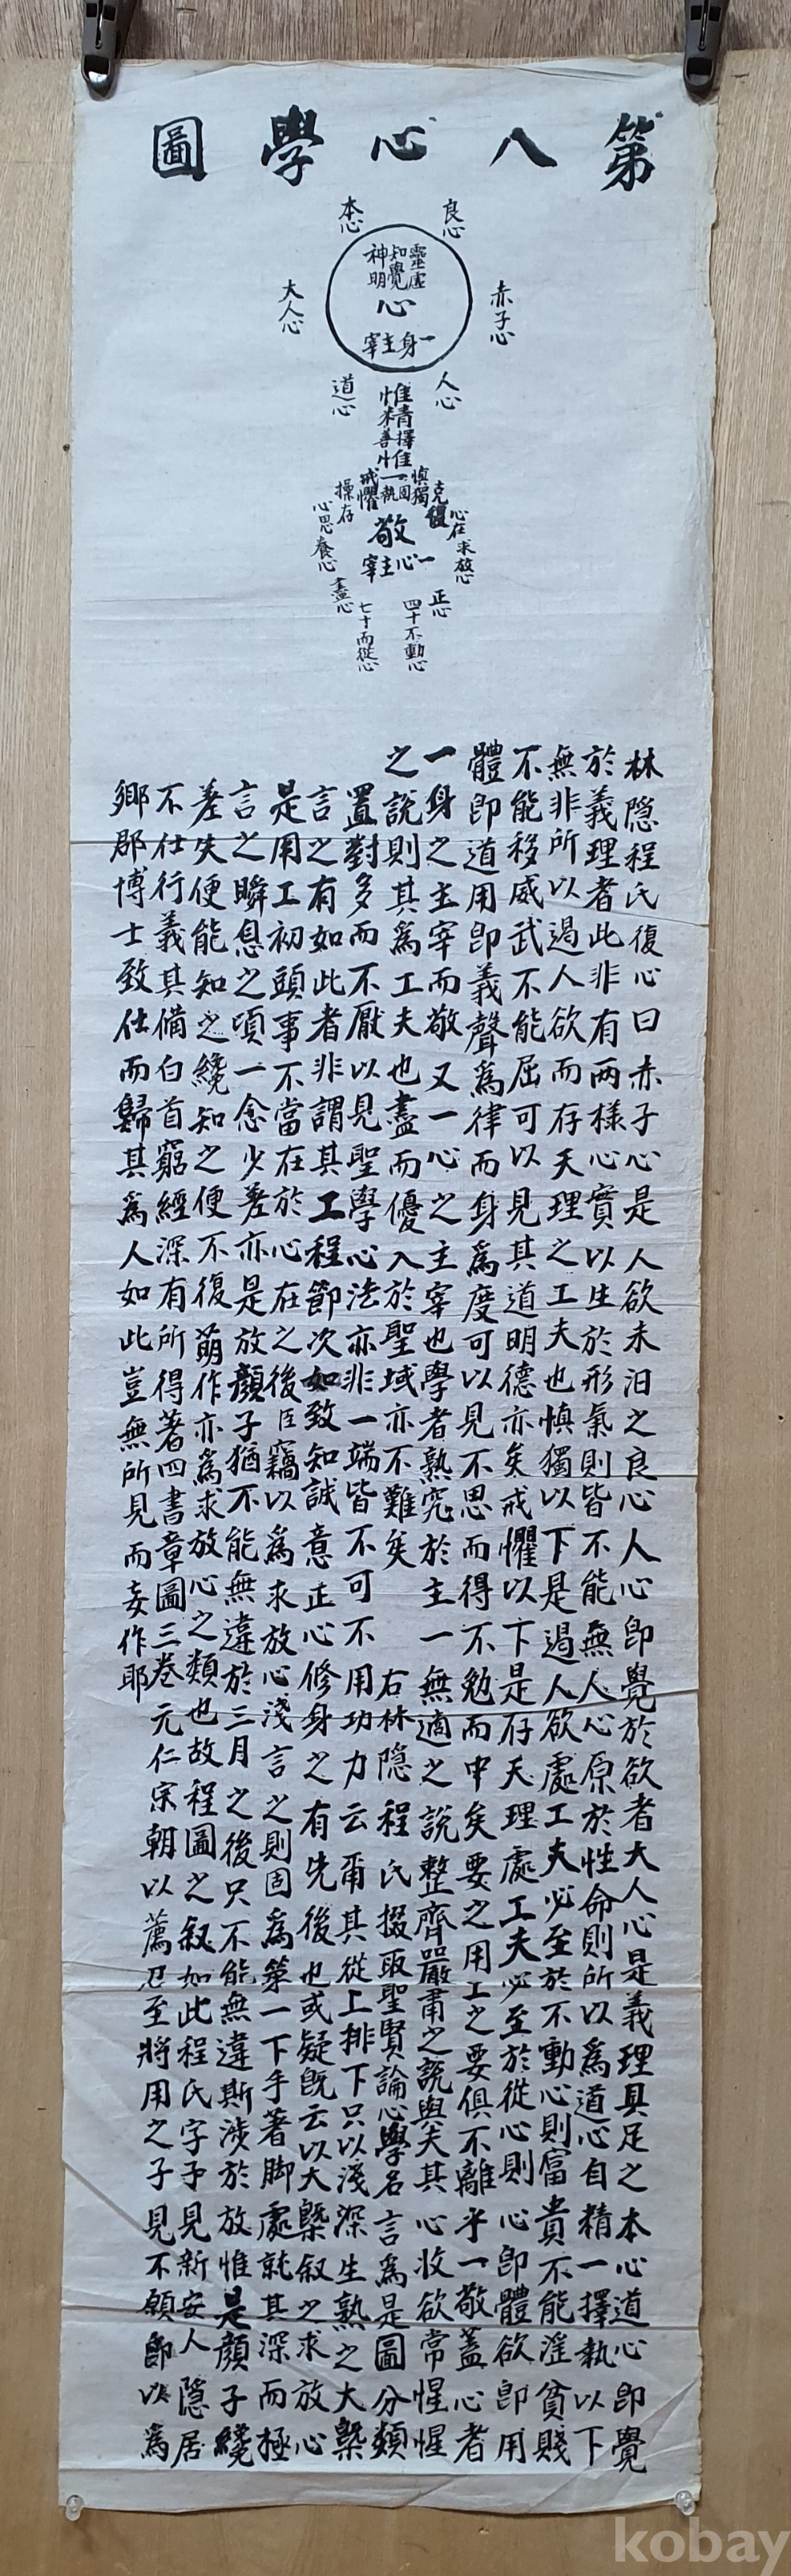 第八心學圖
良心
本心
虛靈
知覺
神明
心
一身主宰
赤子心
大人心
人心
道心
惟精
擇善
惟一
固執
愼獨
戒懼
克復
操存
敬
一心主宰
心在
求放心
心思
養心
正心
盡心
四十不動心
七十而從心
林隱程氏復心曰赤子心是人欲未汨之良心人心卽覺於欲者大人心是義理具足之本心道心卽覺
於義理者此非有兩樣心實以生於形氣則皆不能無人心原於性命則所以爲道心自精一擇執以下
無非所以遏人欲而存天理之工夫也愼獨以下是遏人欲處工夫必至於不動心則富貴不能淫貧賤
不能移威武不能屈可以見其道明德亦矣戒懼以下是存天理處工夫必至於從心則心卽體欲卽用
體卽道用卽義聲爲律而身爲度可以見不思而得不勉而中矣要之用工之要俱不離乎一敬蓋心者
一身之主宰而敬又一心之主宰也學者熟究於主一無適之說整齊嚴肅之說與夫其心收欲常惺惺
之說則其爲工夫也盡而優入於聖域亦不難矣 右林隱程氏掇取聖賢論心學名言爲是圖分類
置對多而不厭以見聖學心法亦非一端皆不可不用功力云爾其從上排下只以淺深生熟之大槩
言之有如此者非謂其工程節次如致知誠意正心修身之有先後也或疑旣云以大槩叙之求放心
是用工初頭事不當在於心在之後臣竊以爲求放心淺言之則固爲第一下手著脚處就其深而極
言之瞬息之頃一念少差亦是放顔子猶不能無違於三月之後只不能無違斯涉於放惟是顔子纔
差失便能知之纔知之便不復萌作亦爲求放心之類也故程圖之叙如此程氏字子見新安人隱居
不仕行義其備白首窮經深有所得著四書章圖三卷元仁宗朝以薦召至將用之子見不願卽以爲
鄕郡博士致仕而歸其爲人如此豈無所見而妄作耶
kobay